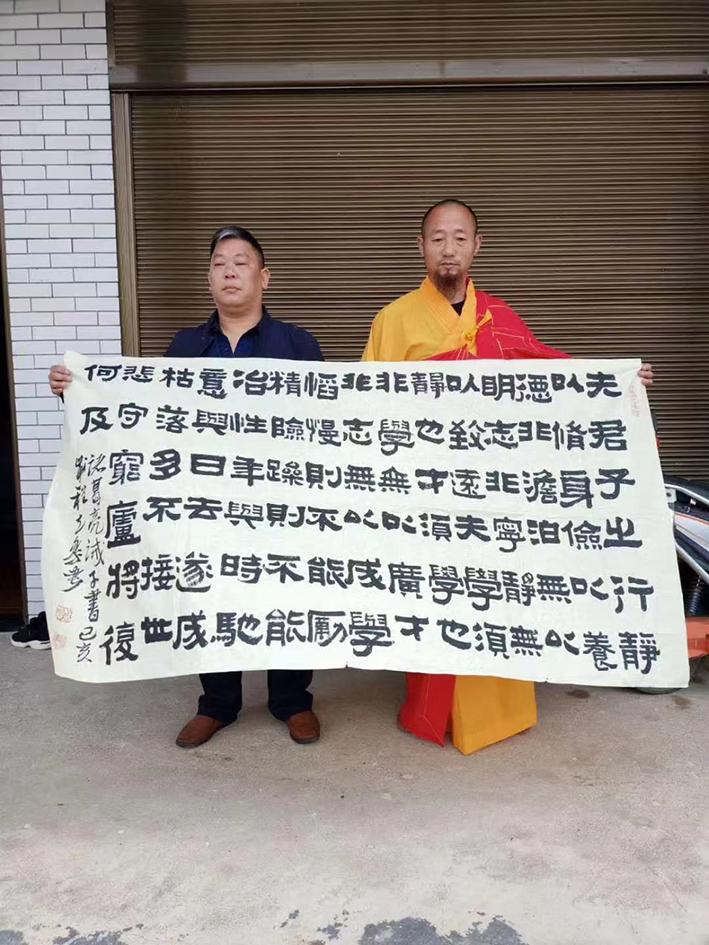 夫君子之行靜
以脩身儉以養
德非澹泊無以
明志非寧靜無
以致遠夫學須
靜也才須學也
非學無以廣才
非志無以成學
慆慢則不能勵
精險躁則不能
冶性年與時馳
意與日去遂成
枯落多不接世
悲守窮廬將復
何及
諸葛亮誡子書己亥